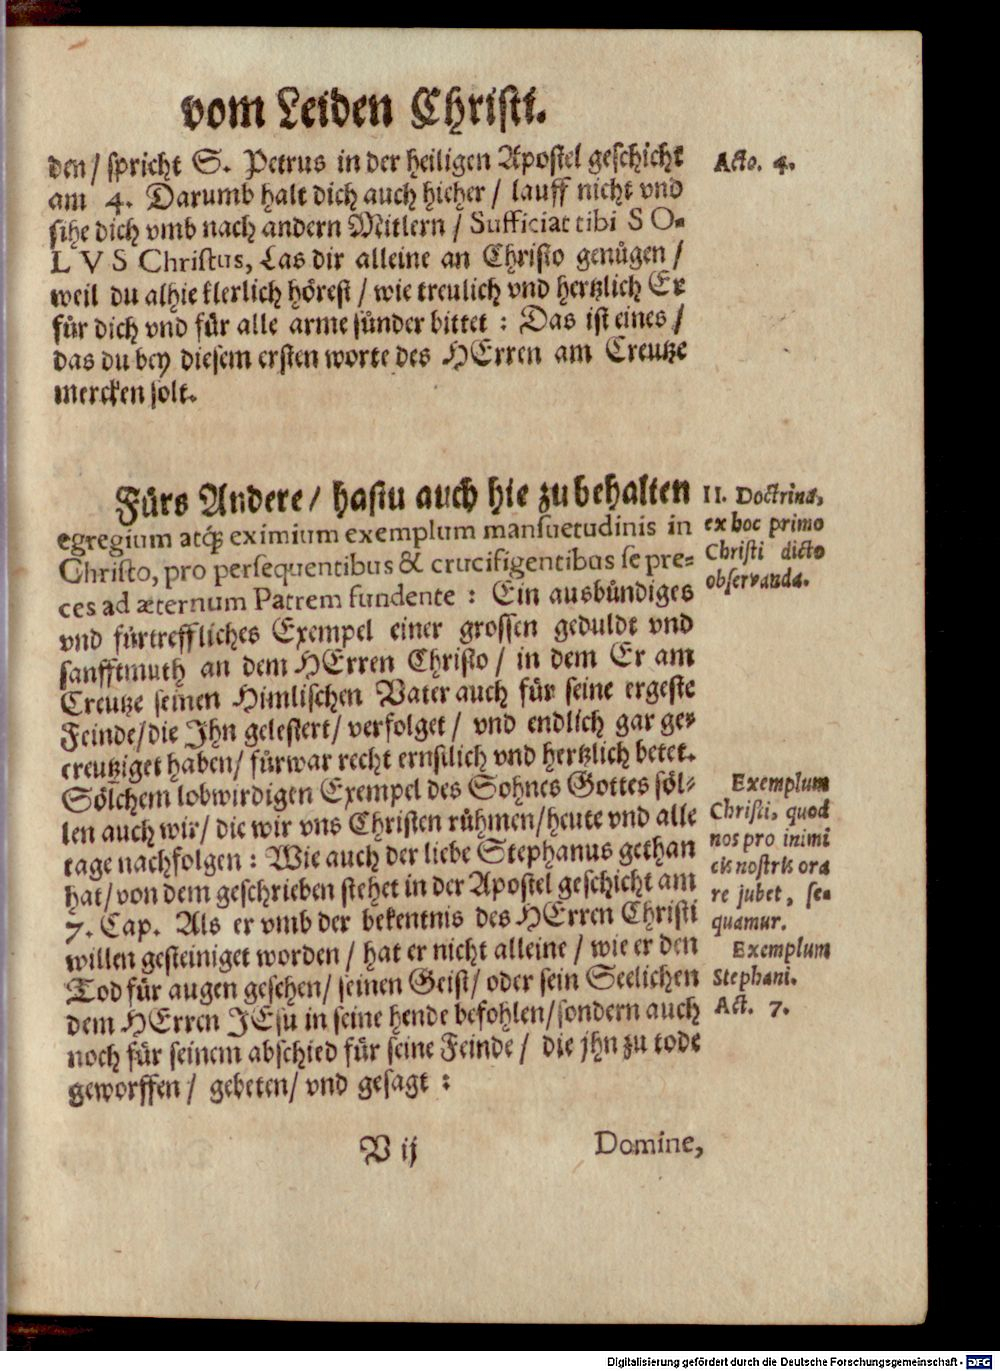 vom Leiden Christi.
den/ spricht S. Petrus in der heiligen Apostel geschicht
Acto. 4.
am 4. Darumb halt dich auch hieher / lauff nicht vnd
sihe dich vmb nach andern Mitlern / Sufficiat tibi S O-
L V S Christus, Las dir alleine an Christo genügen /
weil du alhie klerlich hörest / wie treulich vnd hertzlich Er
für dich vnd für alle arme sünder bittet : Das ist eines /
das du bey diesem ersten worte des HErren am Creutze
mercken solt.
Fürs Andere / hastu auch hie zu behalten
egregium atq; eximium exemplum mansuetudinis in
Christo, pro persequentibus & crucifigentibus se pre-
ces ad æternum Patrem fundente : Ein ausbündiges
vnd fürtreffliches Exempel einer grossen geduldt vnd
sanfftmuth an dem HErren Christo / in dem Er am
Creutze seinen Himlischen Vater auch für seine ergeste
Feinde/die Ihn gelestert/ verfolget / vnd endlich gar ge-
creutziget haben/ fürwar recht ernstlich vnd hertzlich betet.
Sölchem lobwirdigen Exempel des Sohnes Gottes söl-
len auch wir/ die wir vns Christen rühmen/heute vnd alle
tage nachfolgen : Wie auch der liebe Stephanus gethan
hat/ von dem geschrieben stehet in der Apostel geschicht am
7. Cap. Als er vmb der bekentnis des HErren Christi
willen gesteiniget worden / hat er nicht alleine / wie er den
Tod für augen gesehen/ seinen Geist/ oder sein Seelichen
dem HErren JEsu in seine hende befohlen/sondern auch
noch für seinem abschied für seine Feinde / die jhn zu tode
geworffen / gebeten/ vnd gesagt :
II. Doctrina,
ex hoc primo
Christi dicto
observanda.
Exemplum
Christi, quod
nos pro inimi
cis nostris ora
re jubet, se-
quamur.
Exemplum
Stephani.
Act. 7.
V ij
Domine,
Digitalisierung gefördert durch die Deutsche Forschungsgemeinschaft - DFG